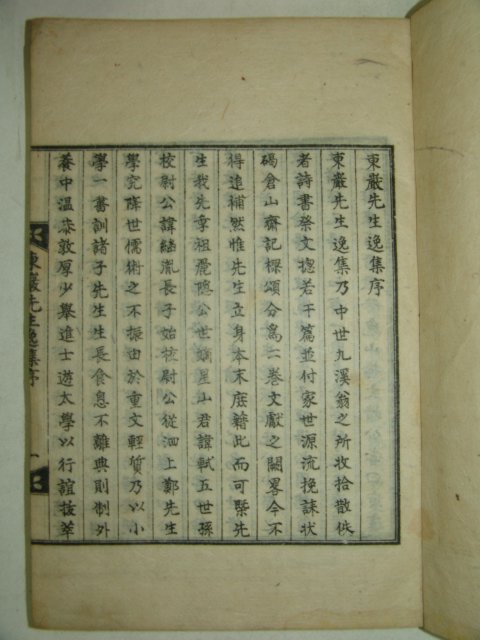 東巖先生逸集序
東巖先生逸集乃中世九溪翁之所收拾散佚
者詩書祭文摠若干篇並付家世源流挽誄狀
碣倉山齋記樑頌分爲二卷文獻之闕畧今不
得追補然惟先生立身本末庶藉此而可槩先
生我先季祖麗隱公世嫡星山君諱軾五世孫
校尉公諱繼胤長子始校尉公從泗上鄭先生
學究降世儒術之不振由於重文輕質乃以小
學一書訓諸子先生生長食息不離典則制外
養中溫恭敦厚少擧進士遊太學以行誼拔萃
東巖先生逸集序 一